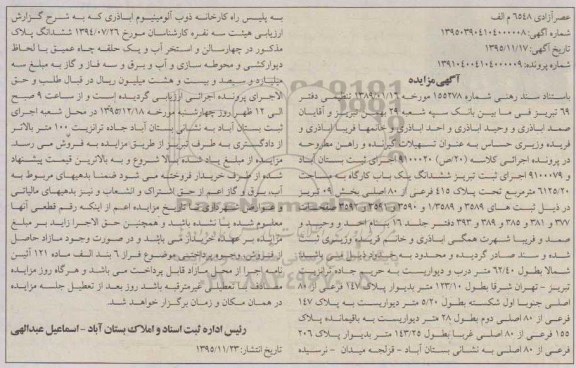 عصر آزادی ۶۵۴۸ م الف
شماره آگهی: ۱۳۹۵۰۳۹۰۴۱۰۴۰۰۰۰۰۸
تاریخ آگهی: ۱۳۹۵/۱۱/۱۷
شماره پرونده: ۱۳۹۱۰۴۰۰۴۱۰۴۰۰۰۰۰۹
آگهی مزایده
باستناد سند رهنی شماره ۱۵۵۲۷۸ مورخه ۱۳۸۹/۱۱/۱۶ تنظیمی دفتر
۶۹ تبریز فی ما بین بانک سپه شعبه ۲۹ بهمن تبریز و آقایان
صمد اباذری و وحید اباذری و احد اباذری و خانمها فریبا اباذری و
فریده وزیری حساس به عنوان تسهیلات گیرنده و راهن مطروحه
در پرونده اجرائی کلاسه (۲۰/ص) ۹۱۰۰۰۲۰ اجرای ثبت بستان آباد
و ۹۱۰۰۰۷۹ اجرای ثبت تبریز ششدانگ یک باب کارگاه به مساحت
۶۱۲۵/۲۰ مترمربع تحت پلاک ۴۱۵ فرعی از ۸۰ اصلی بخش ۰۹ تبریز
در ذیل ثبت های ۳۵۸۹ و ۱/۳۵۸۹ و ۳۵۹۰ و ۳۵۹۱ و ۳۵۹۲ صفحات
۳۷۷ و ۳۸۱ و ۳۸۵ و ۳۸۹ و ۳۹۳ دفتر جلد ۱۶ بنام احد و وحید و
صمد و فریبا شهرت همگی اباذری و خانم فریده وزیری ثبت
شده و سند صادر گردیده و محدود به حدود ذیل می باشد:
شمالا بطول ۶۲/۴۰ متر درب و دیواریست به حریم جاده ترانزیت
تبریز - تهران شرقا بطول ۱۲۳/۱۰ متر بدیوار پلاک ۱۴۷ فرعی از ۸۰
اصلی جنوبا اول شکسته بطول ۵/۲۰ متر دیواریست به پلاک ۱۴۷
فرعی از ۸۰ اصلی دوم بطول ۲۸ متر دیواریست به باقیمانده پلاک
۱۵۵ فرعی از ۸۰ اصلی غربا بطول ۱۴۳/۲۵ متر بدیوار پلاک ۲۰۶
فرعی از ۸۰ اصلی به نشانی بستان آباد - قزلجه میدان - نرسیده
به پلیس راه کارخانه ذوب آلومینیوم اباذری که به شرح گزارش
ارزیابی هیئت سه نفره کارشناسان مورخ ۱۳۹۴/۰۷/۲۶ ششدانگ پلاک
مذکور در چهارسالن و استخر آب و یک حلقه چاه عمیق با لحاظ
دیوارکشی و محوطه سازی و آب و برق و سه فاز و گاز به مبلغ سه
میلیارد و سیصد و بیست و هشت میلیون ریال در قبال طلب و حق
الاجرای پرونده اجرائی ارزیابی گردیده است و از ساعت ۹ صبح
الی ۱۲ ظهر روز چهارشنبه مورخه ۱۳۹۵/۱۲/۱۸ در محل شعبه اجرای
ثبت بستان آباد به نشانی بستان آباد جاده ترانزیت ۱۰۰ متر بالاتر
از دادگستری به طرف تبریز از طریق مزایده به فروش می رسد.
مزایده از مبلغ یاد شده بالا شروع و به بالاترین قیمت پیشنهاد
شده از طرف خریدار فروخته می شود ضمنا بدهیهای مربوط به
آب، برق و گاز اعم از حق اشتراک و انشعاب و نیز بدهیهای مالیاتی
و عوارض شهرداری تا تاریخ مزایده اعم از اینکه رقم قطعی آنها
معلوم شده یا نشده باشد و همچنین حق الاجرا زاید بر مبلغ
مزایده بر عهده خریدار می باشد و در صورت وجود مازاد حاصل
از فروش وجوه پرداختی موضوع فراز ۶ بند الف ماده ۱۲۱ آئین
نامه اجرا از محل مازاد قابل پرداخت می باشد و هرگاه روز مزایده
مصادف با تعطیلی غیرمترقبه باشد روز بعد از تعطیل جلسه مزایده
در همان مکان و زمان برگزار خواهد شد.
رئیس اداره ثبت اسناد و املاک بستان آباد - اسماعیل عبدالهی
تاریخ انتشار: ۱۳۹۵/۱۱/۲۳